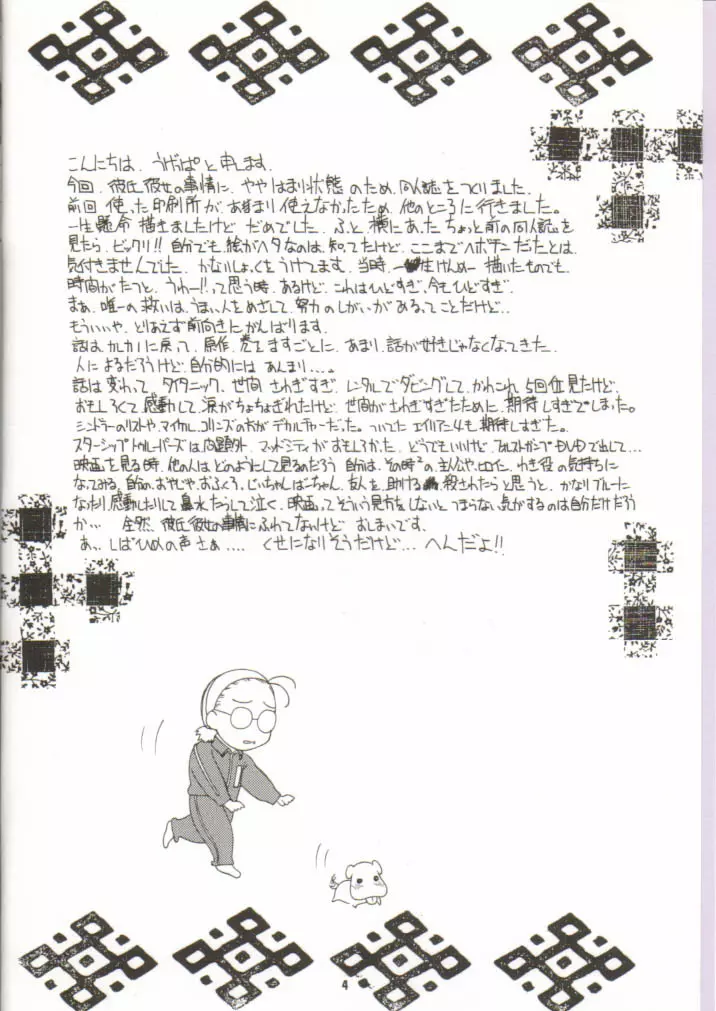 こんにちは、うげっぱと申します。
今回、彼氏彼女の事情に、ややはまり状態のため、同人誌をつくりました。
前回使った印刷所が、あまり使えなかったため、他のところに行きました。
一生懸命描きましたけど、だめでした。ふと、横にあったちょっと前の同人誌を
見たら、ビックリ!! 自分でも絵がヘタなのは、知ってたけど、ここまでヘボチンだったとは、
気付きませんでした。かなりしょっくをうけてます。当時、一生けんめー描いたものでも、
時間がたつと、うわー!!って思う時、あるけど、これはひどすぎ、今もひどすぎ。
まぁ、唯一の救いは、うまい人をめざして、努力のしがいがあるってことだけど…
もういいや、とりあえず前向きにがんばります。
話は、カレカノに戻って、原作、巻をますごとに、あまり、話が好きじゃなくなってきた。
人によるだろうけど、自分的には、あんまり…。
話は変わって、タイタニック、世間、さわぎすぎ、レンタルでダビングして、かれこれ5回位見たけど、
おもしろくて感動して涙がちょちょぎれたけど、世間がさわぎすぎたために、期待しすぎてしまった。
シンドラーのリストや、マイケル・コリンズの方がデカルチャーだった。ついでに、エイリアン4も期待しすぎた。
スターシップトゥルーパーズは問題外、マッドシティがおもしろかった。どうでもいいけど、フォレストガンプDVDで出して…
映画を見る時、他の人は、どのようにして見るのだろう、自分は、その時々の主人公や、ヒロイン、わき役の気持ちに
なってみる。自分のおやじや、おふくろ、じいちゃん、ばーちゃん、友人を、助ける 殺されたらと思うと、かなりブルーに
なったり、感動したりして鼻水たらして泣く、映画ってそういう見方をしないと、つまらない気がするのは自分だけだろう
か… 全然、彼氏彼女の事情にふれてないけど、おしまいです。
あっ、しばひめの声さぁ…. くせになりそうだけど… へんだよ!!
4